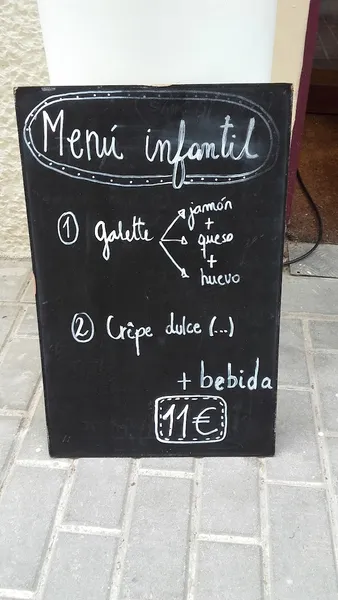 Menú infantil
jamón
+
1 galette queso
+
huevo
2 Crêpe dulce (...)
+ bebida
11€